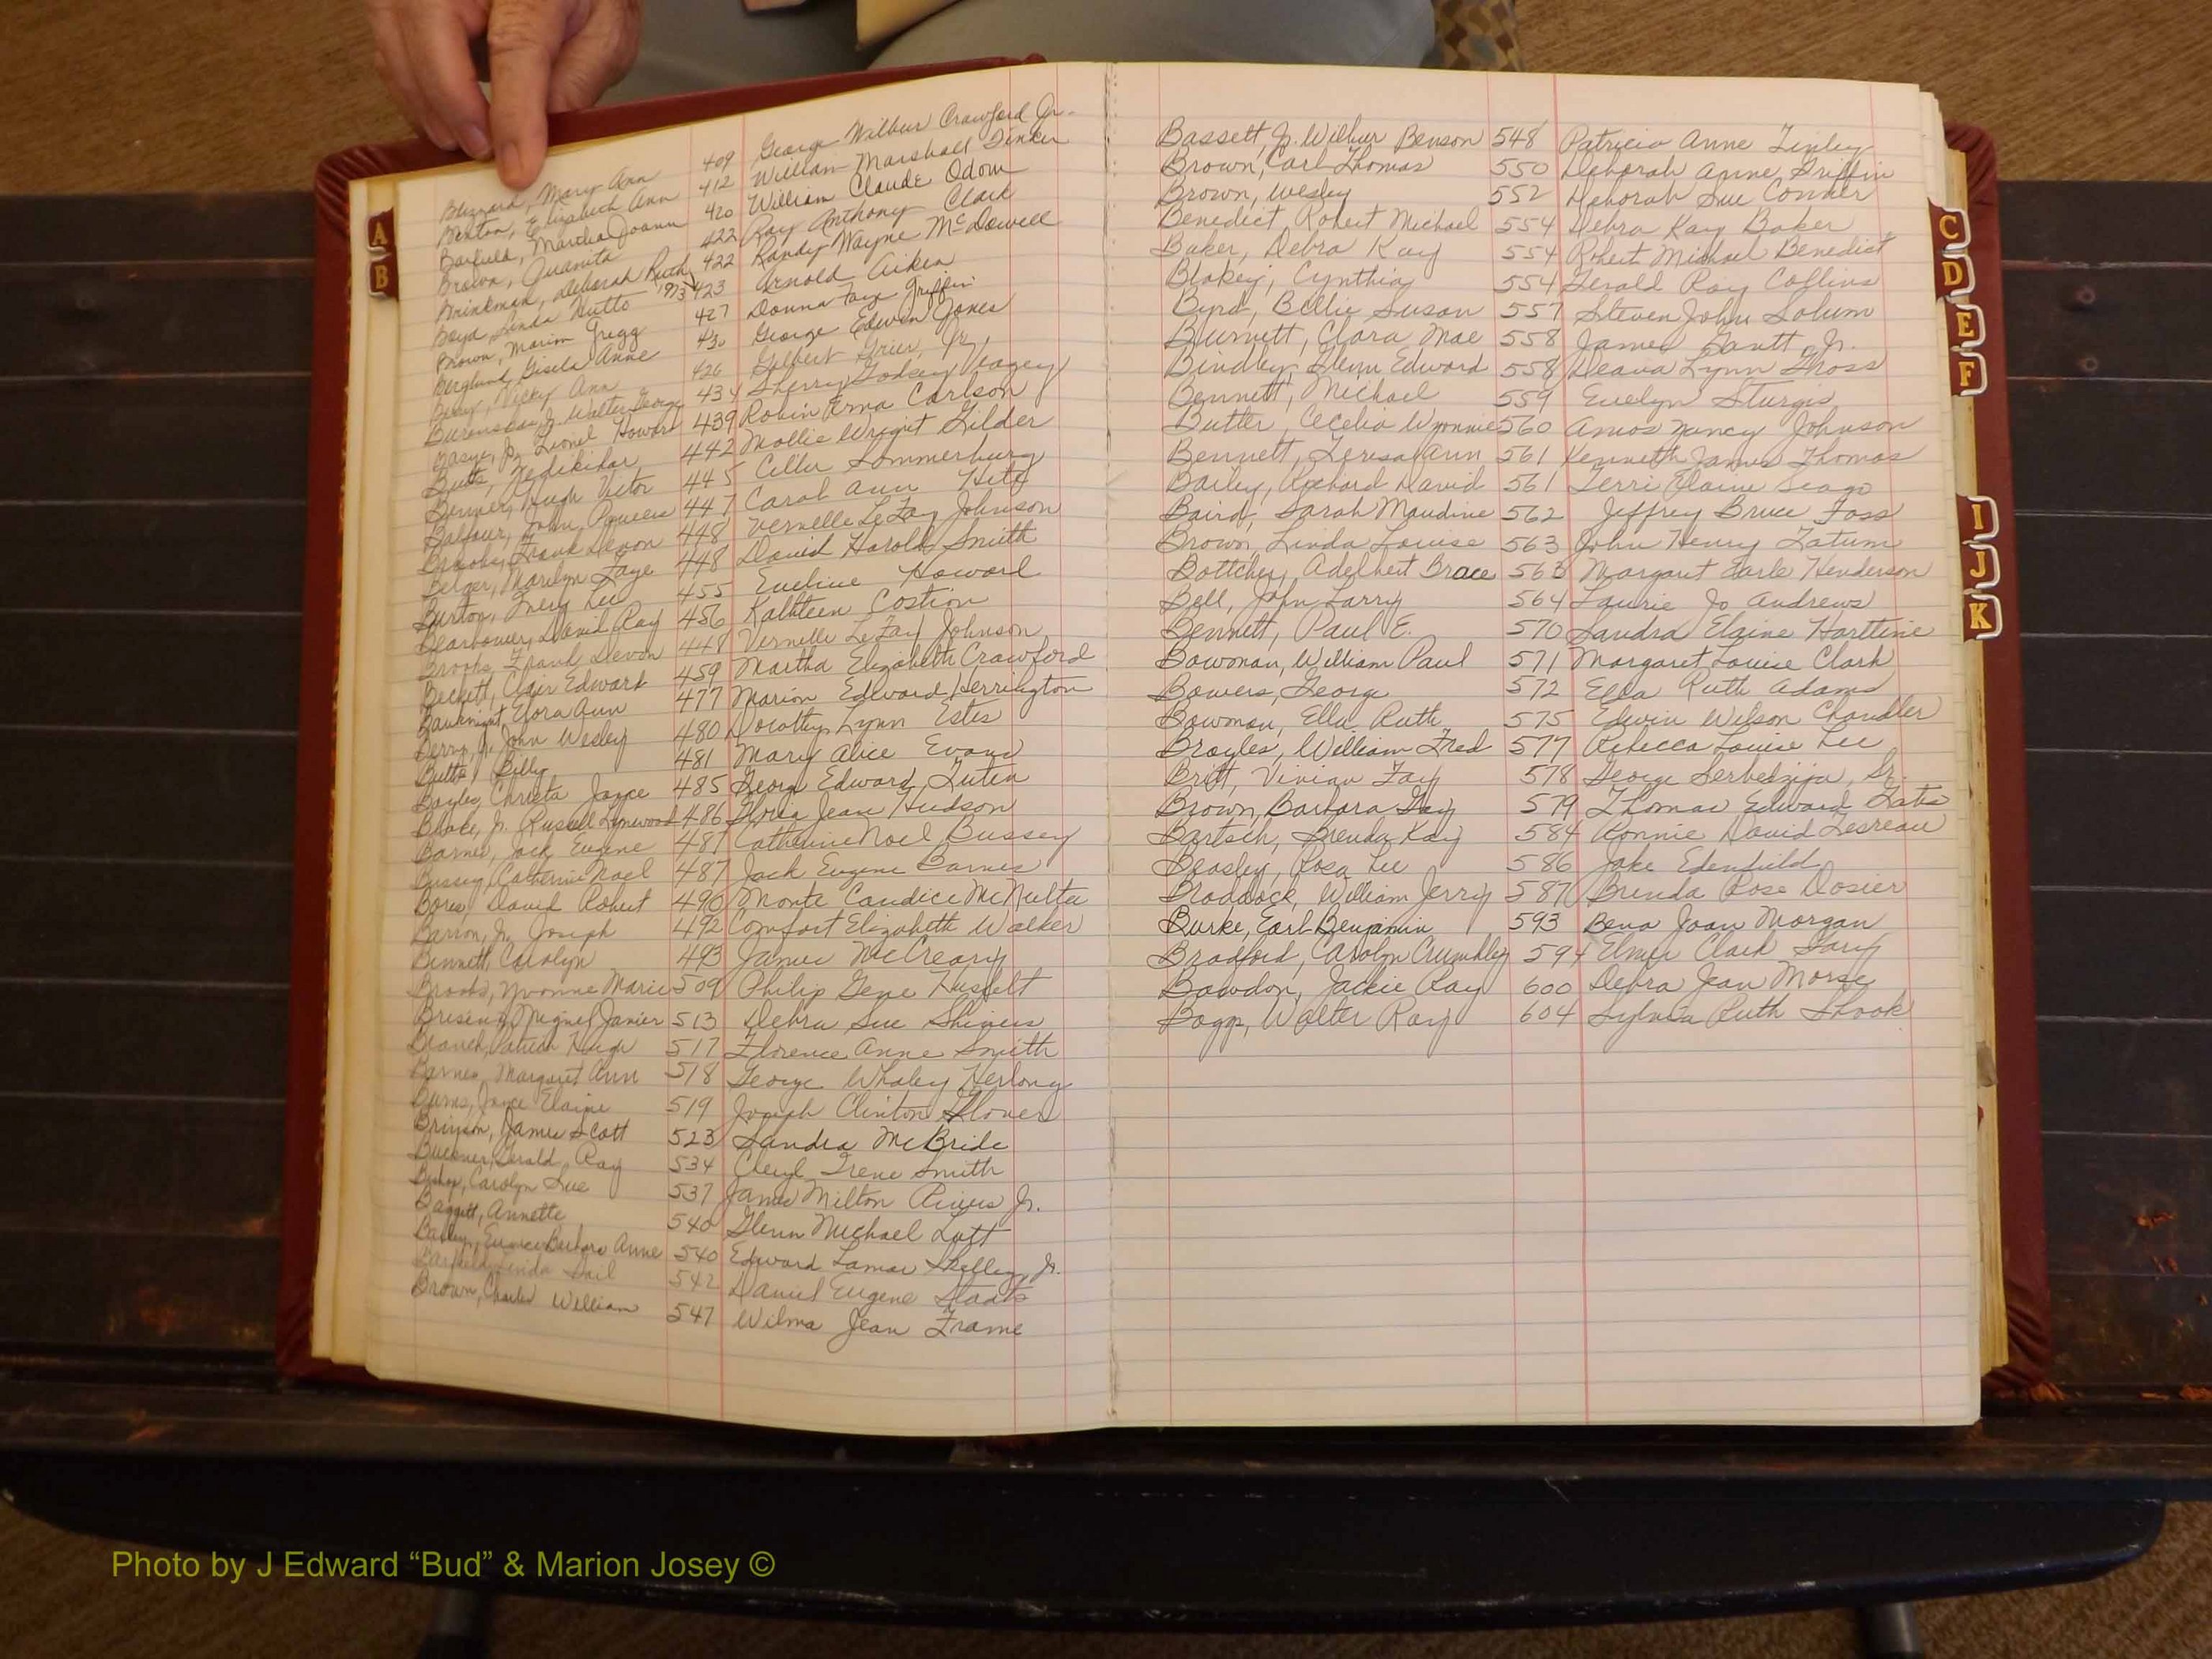 Blizzard, Mary Ann 409 George Wilbur Crawford Jr.
Benton, Elizabeth Ann 412 William Marshall Tinker
Barfield, Martha Joann 420 William Claude Odom
Brown, Juanita 422 Ray Anthony Clark
Brinkman, Deborah Ruth 422 Randy Wayne McDowell
Boyd, Linda Hutto 1973 423 Arnold Aiken
Brown, Marion Gregg 427 Donna Faye Griffin
Berglund, Gisela Anne 430 George Edwin Jones
Berry, Vicky Ann 426 Gilbert Grier, Jr.
Jr. Walter George 434 Sherry Godsey Yeagey
Jr. Lionel Howard 439 Robin Erma Carlson
Butts, 442 Mollie Wright Gilder
Hugh Victor 445 Sommerburg
Balfour, John 447 Carol Ann Hite
Brooks, Frank Devon 448 Vernelle LeFay Johnson
Berger, Marilyn Faye 448 David Harold Smith
Burton, Emery Lee 455 Eveline Howard
Bearbower, David Ray 456 Kathleen Costion
Brooks, Frank Devon 448 Vernelle LeFay Johnson
Beckett, Clair Edward 459 Martha Elizabeth Crawford
Bauknight, Elora Ann 477 Marion Edward Herrington
Berry, Jr. John Wesley 480 Dorothy Lynn Estes
Butts, Billy 481 Mary Alice Evans
Bayles, Christa Joyce 485 George Edward Luten
Blake, Jr. Russell Lynwood 486 Gloria Jean Hudson
Barnes, Jack Eugene 487 Catherine Noel Bussey
Bussey, Catherine Noel 487 Jack Eugene Barnes
David Robert 490 Monte Candice McNulta
Barron, Jr. Joseph 492 Comfort Elizabeth Walker
Bennett, Carolyn 493 James McCreary
Brooks, Yvonne Marie 509 Philip Gene
Miguel Javier 513 Debra Sue Shivers
Branch, 517 Florence Anne Smith
Barnes, Margaret Ann 518 George Whaley Herlong
Burns, Joyce Elaine 519 Joseph Clinton Glover
Brinson, James Scott 523 Sandra McBride
Buckner, Gerald Ray 534 Cheryl Irene Smith
Bishop, Carolyn Sue 537 James Milton Rivers Jr.
Baggett, Annette 540 Glenn Michael Lott
Bailey, Eunice Barbara Anne 540 Edward Lamar Skelley, Jr.
Barfield, Linda Gail 542 Daniel Eugene Staats
Brown, Charles William 547 Wilma Jean Frame
Bassett, Jr. Wilbur Benson 548 Patricia Anne Tinley
Brown, Carl Thomas 550 Deborah Anne Griffin
Brown, Wesley 552 Deborah Sue Conner
Benedict Robert Michael 554 Debra Kay Baker
Baker, Debra Kay 554 Robert Michael Benedict
Blakey, Cynthia 554 Gerald Ray Collins
Byrd, Billie Susan 557 Steven John Solum
Burnett, Clara Mae 558 James Gantt, Jr.
Bindley, Glenn Edward 558 Deava Lynn Gross
Bennett, Michael 559 Evelyn Sturgis
Butler, Cecelia Wynnie 560 Amos Yancy Johnson
Bennett, Teresa Ann 561 Kenneth James Thomas
Bailey, Richard David 561 Terri Elaine Seago
Baird, Sarah Maudine 562 Jeffrey Bruce Foss
Brown, Linda Louise 563 John Henry Tatum
Bottcher, Adelbert Brace 563 Margaret Earle Henderson
Bell, John Larry 564 Laurie Jo Andrews
Bennett, Paul E. 570 Sandra Elaine Hartline
Bowman, William Paul 571 Margaret Louise Clark
Bowers, George 572 Ella Ruth Adams
Bowman, Ella Ruth 575 Edwin Wilson Chandler
Broyles, William Fred 577 Rebecca Louise Lee
Britt, Vivian Fay 578 George Serbedzija, Sr.
Brown, Barbara Gay 579 Thomas Edward
Bartsch, Brenda Kay 584 Ronnie David Lesreau
Beasley, Rosa Lee 586 Jake Edenfield
Braddock, William Jerry 587 Brenda Rose Dosier
Burke, Earl Benjamin 593 Bena Joan Morgan
Bradford, Carolyn Crumbley 594 Elmer Clark Gary
Bawdon, Jackie Ray 600 Debra Jean Morse
Boggs, Walter Ray 604 Sylvia Ruth Shook
A
B
C
D
E
F
I
J
K
Photo by J Edward “Bud” & Marion Josey ©